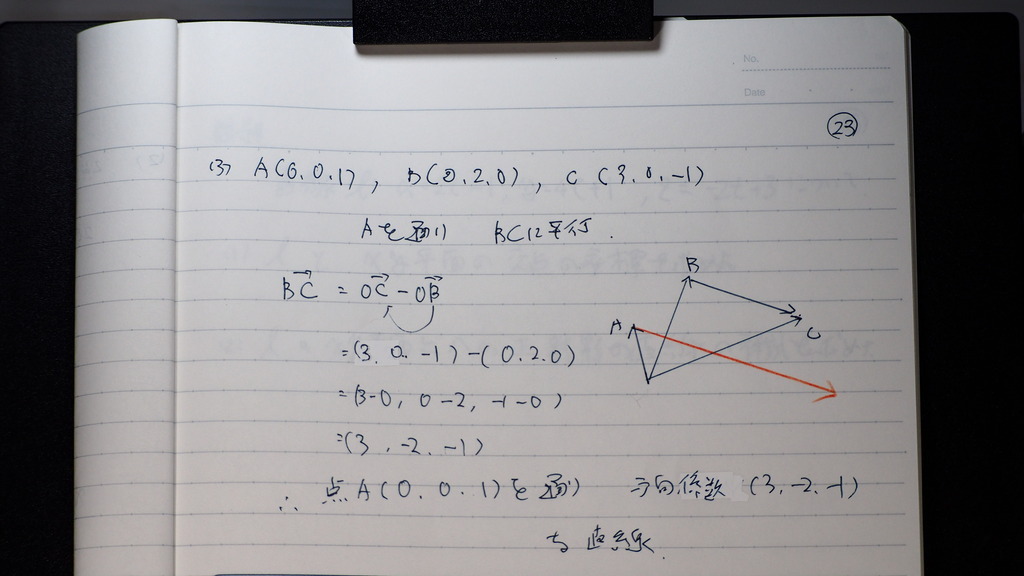 No.
Date
㉓
(3) A(0, 0, 1), B(0, 2, 0), C(3, 0, -1)
Aを通り BCに平行.
BC→ = OC→ - OB→
=(3, 0, -1) - (0, 2, 0)
=(3-0, 0-2, -1-0)
=(3, -2, -1)
∴ 点A(0, 0, 1)を通り 方向係数 (3, -2, -1)
直線.
B
A
C